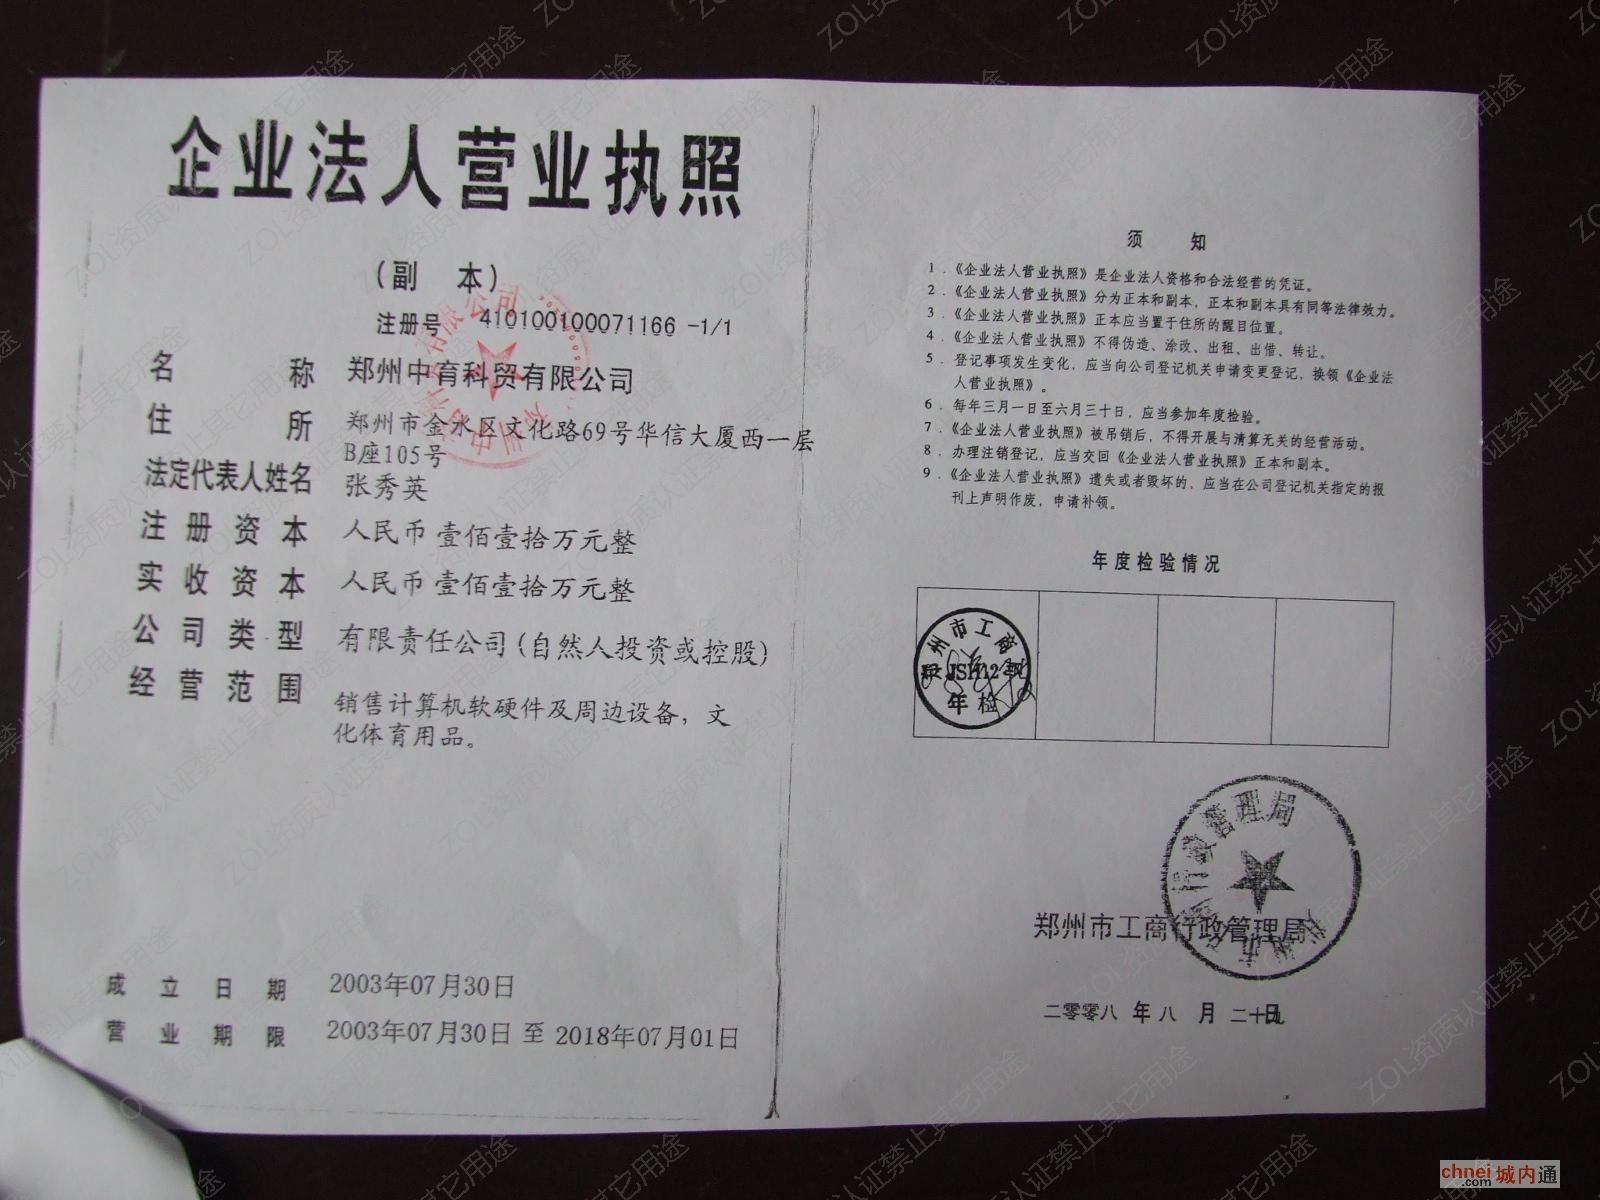 企业法人营业执照
（副 本）
注册号 410100100071166 -1/1
名 称 郑州中育科贸有限公司
住 所 郑州市金水区文化路69号华信大厦西一层
B座105号
法定代表人姓名 张秀英
注册资本 人民币 壹佰壹拾万元整
实收资本 人民币 壹佰壹拾万元整
公司类型 有限责任公司(自然人投资或控股)
经营范围 销售计算机软硬件及周边设备，文
化体育用品。
成立日期 2003年07月30日
营业期限 2003年07月30日 至 2018年07月01日
须 知
1．《企业法人营业执照》是企业法人资格和合法经营的凭证。
2．《企业法人营业执照》分为正本和副本，正本和副本具有同等法律效力。
3．《企业法人营业执照》正本应当置于住所的醒目位置。
4．《企业法人营业执照》不得伪造、涂改、出租、出借、转让。
5．登记事项发生变化，应当向公司登记机关申请变更登记，换领《企业法
人营业执照》。
6．每年三月一日至六月三十日，应当参加年度检验。
7．《企业法人营业执照》被吊销后，不得开展与清算无关的经营活动。
8．办理注销登记，应当交回《企业法人营业执照》正本和副本。
9．《企业法人营业执照》遗失或者毁坏的，应当在公司登记机关指定的报
刊上声明作废，申请补领。
年度检验情况
郑州市工商
JSH12
年检
郑州市工商行政管理局
二零零八 年 八 月 二十 日
ZOL资质认证禁止其它用途
chnei城内通
.com